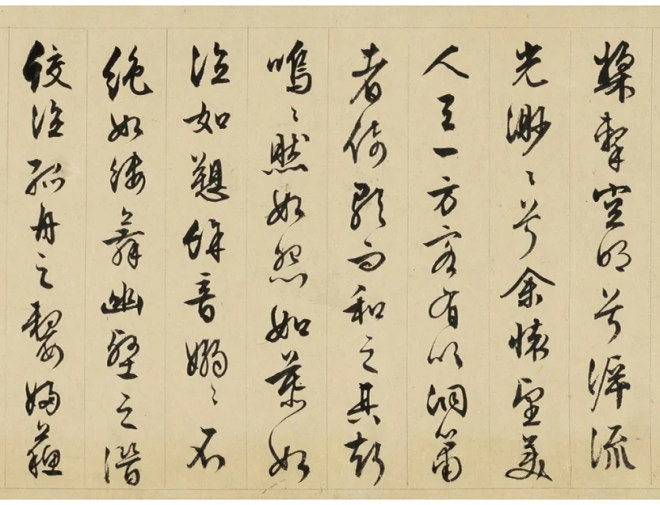 槳擊空明兮泝流
光渺〻兮余懷望美
人天一方客有吹洞簫
者倚歌而和之其聲
嗚〻然如怨如慕如
泣如愬餘音嫋〻不
絕如縷舞幽壑之潛
蛟泣孤舟之嫠婦蘇